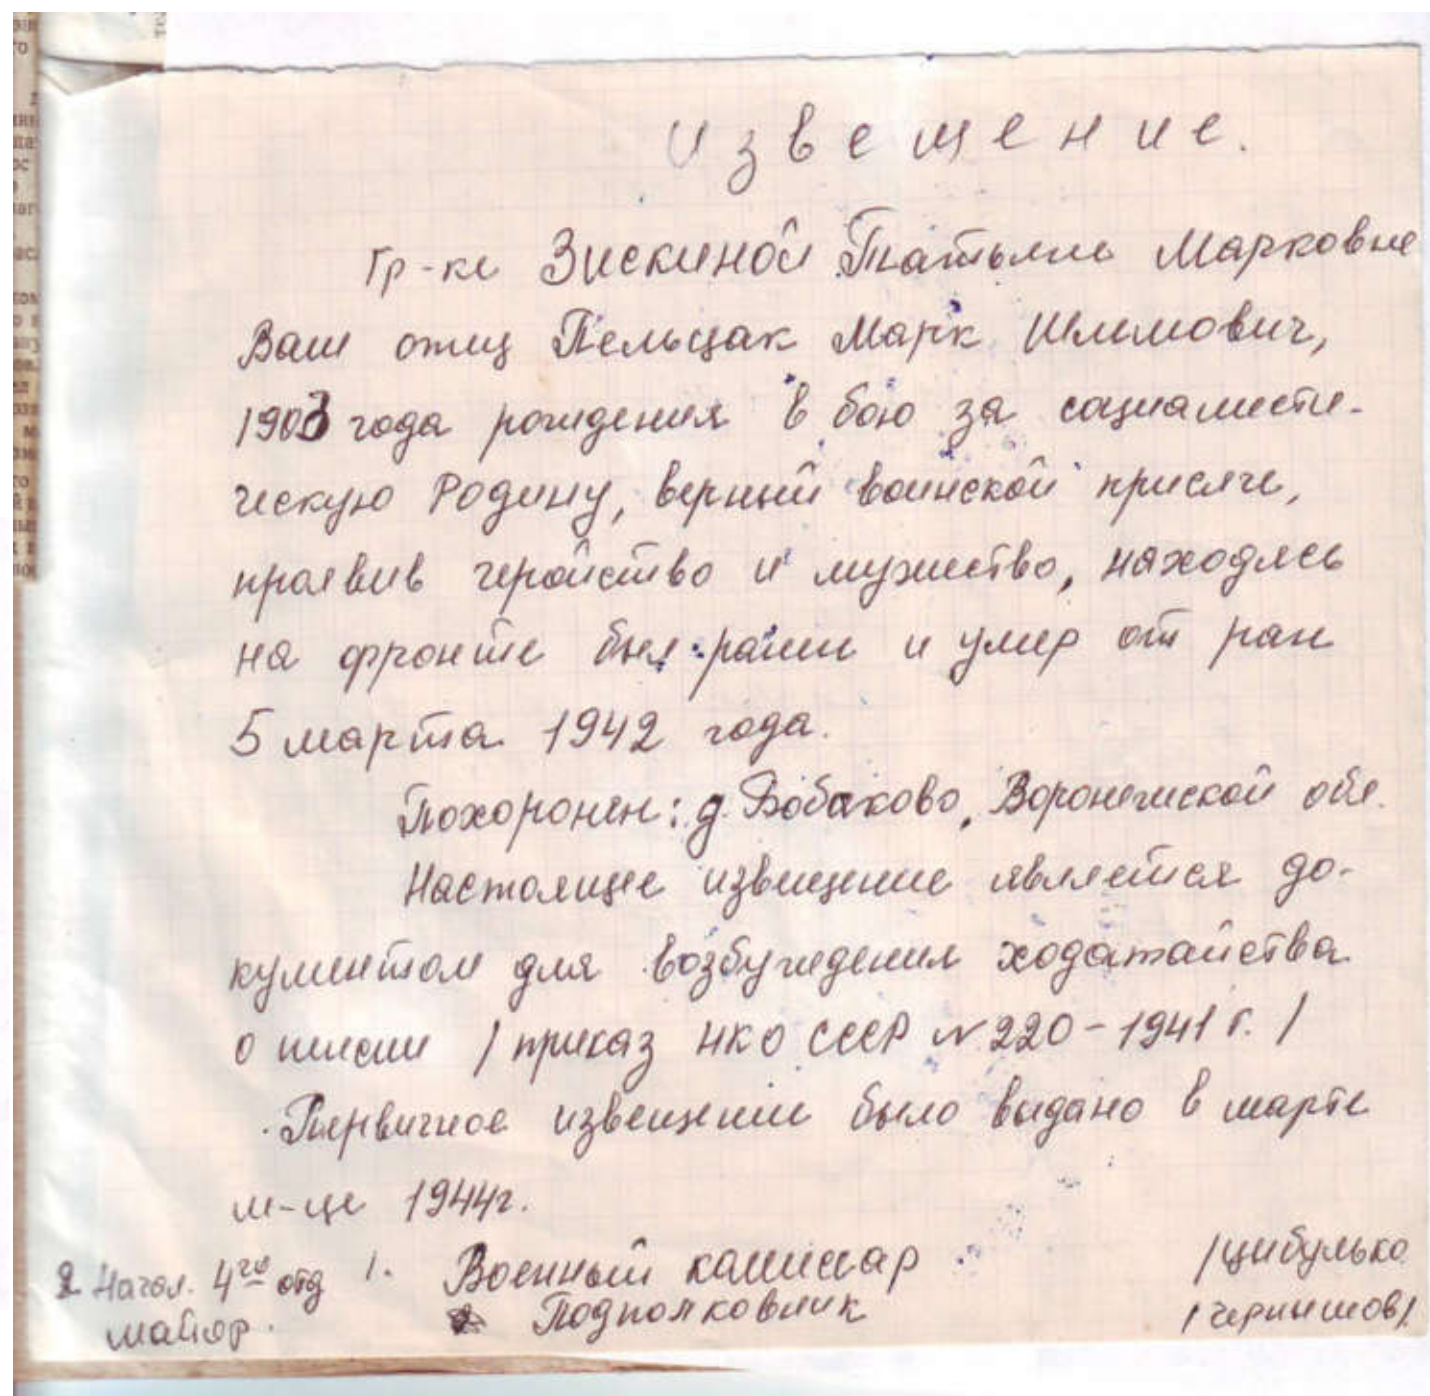 Извещение.
Гр-ке Зискиной Татьяне Марковне
Ваш отец Пельцак Марк Шлимович,
1903 года рождения в бою за социалисти-
ческую Родину, верный воинской присяге,
проявив геройство и мужество, находясь
на фронте был ранен и умер от ран
5 марта 1942 года.
Похоронен: д. Бобаково, Воронежской обл.
Настоящее извещение является до-
кументом для возбуждения ходатайства
о пенсии /приказ НКО СССР №220-1941 г./
Первичное извещение было выдано в марте
м-це 1944г.
1. Военный комиссар /Цибулько
Подполковник
2 Начал. 4го отд
майор. /Чернышов/